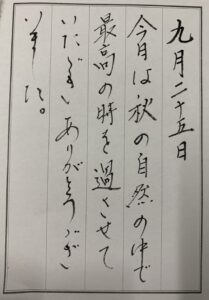 九月二十五日
今日は秋の自然の中で
最高の時を過ごさせて
いただきありがとうござい
いました。